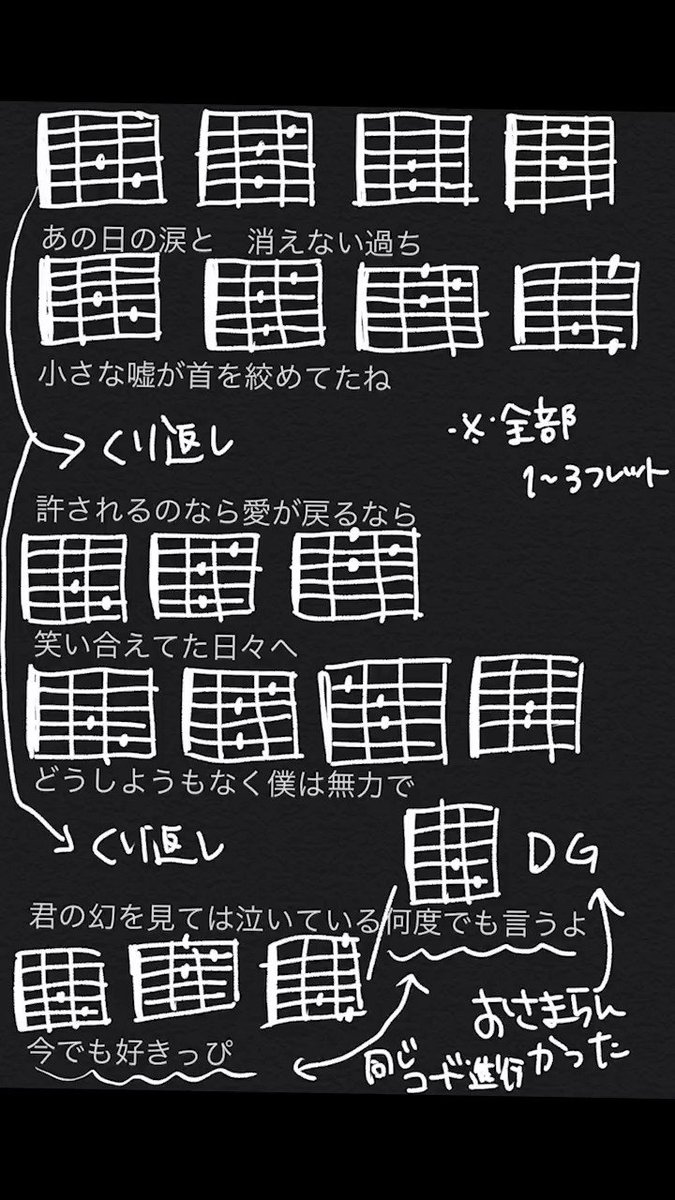 あの日の涙と 消えない過ち
小さな嘘が首を絞めてたね
くり返し
※全部
1~3フレット
許されるのなら愛が戻るなら
笑い合えてた日々へ
どうしようもなく僕は無力で
くり返し
D G
君の幻を見ては泣いている何度でも言うよ
おさまらん
かった
今でも好きっぴ
同じ
コード進行